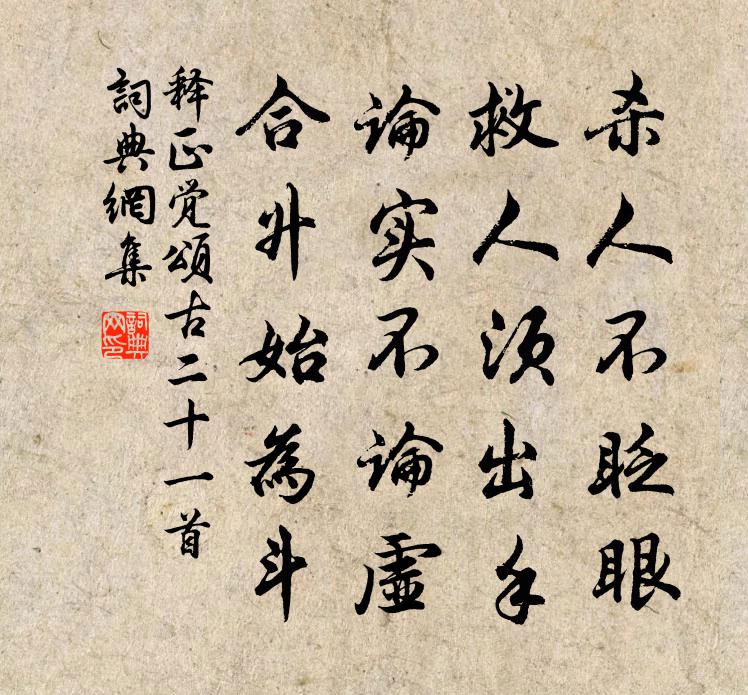 杀人不眨眼
救人须出手
论实不论虚
合升始為斗
释正觉頌古二十一首
詞典網集
詞典
网印